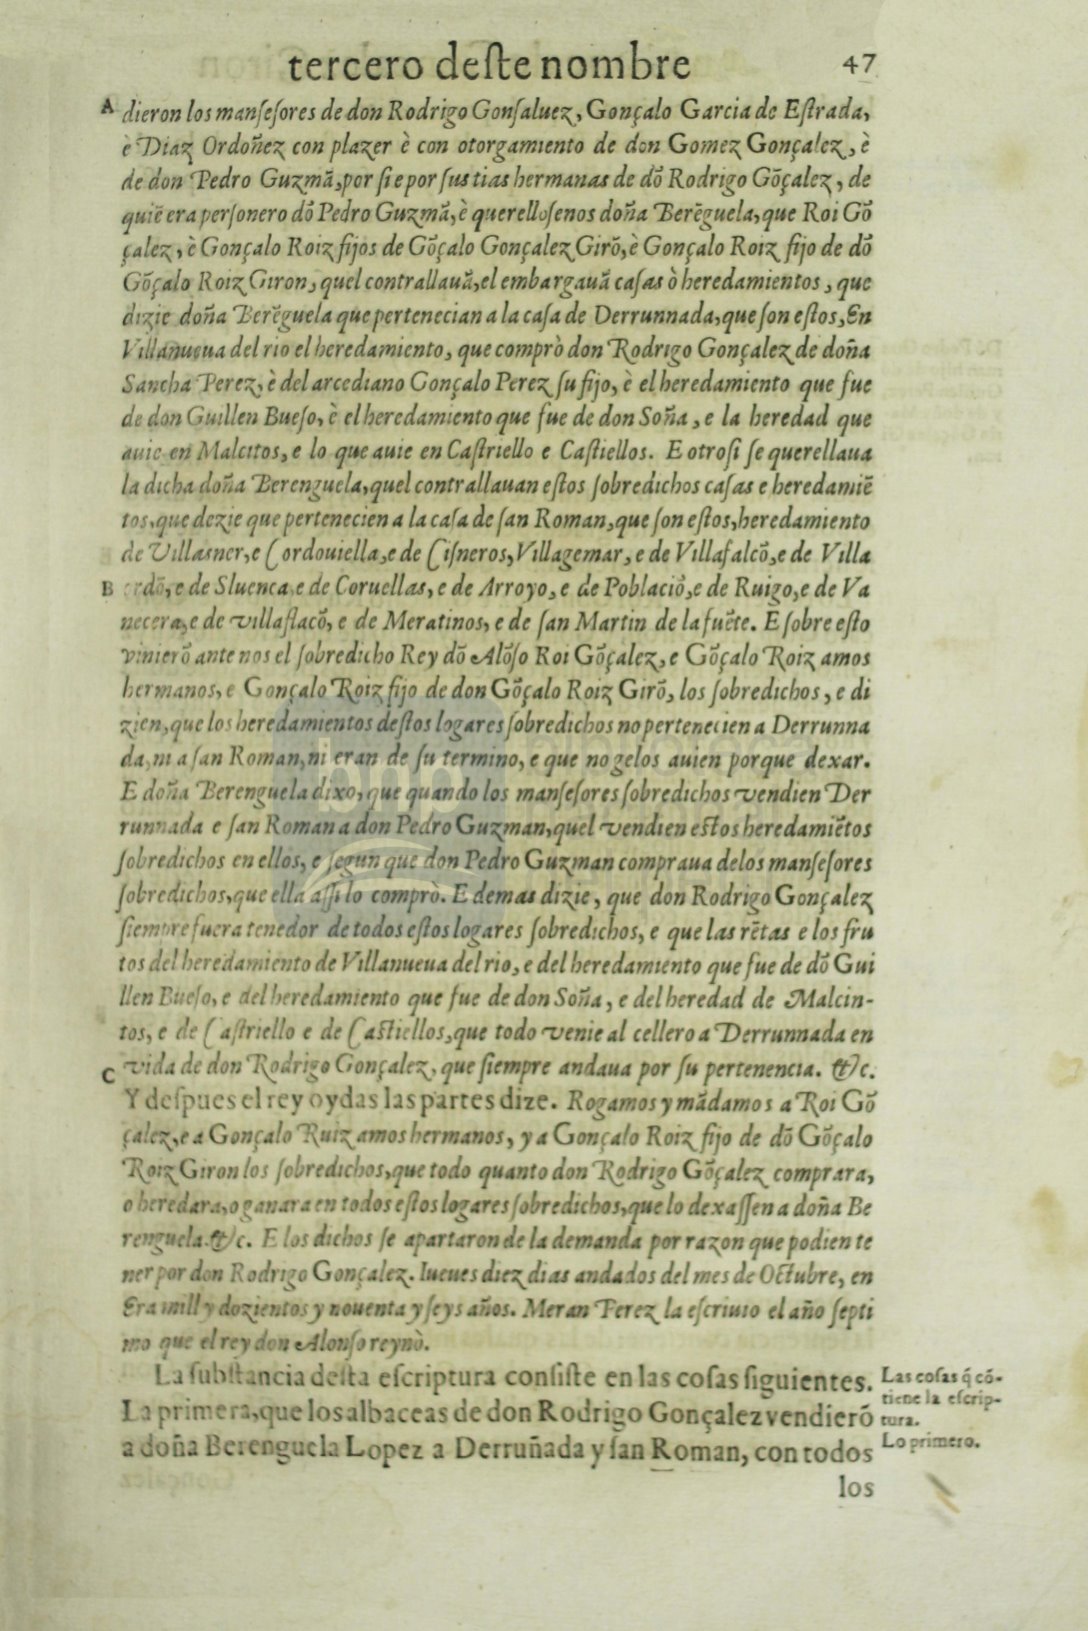 tercero deſte nombre 47
A dieron los manſeſores de don Rodrigo Gonſaluez, Gonçalo Garcia de Eſtrada,
è Diaz Ordoñez con plazer è con otorgamiento de don Gomez Gonçalez, è
de don Pedro Guzmã, por ſi e por ſus tias hermanas de dõ Rodrigo Gõçalez, de
quiẽ era perſonero dõ Pedro Guzmã, è querelloſenos doña Berẽguela, que Roi Gõ
çalez, è Gonçalo Roiz fijos de Gõçalo Gonçalez Girõ, è Gonçalo Roiz fijo de dõ
Gõçalo Roiz Giron, quel contrallauã, el embargauã caſas ò heredamientos, que
dizie doña Berẽguela que pertenecian a la caſa de Derrunnada, que ſon eſtos, En
Villanueua del rio el heredamiento, que comprò don Rodrigo Gonçalez de doña
Sancha Perez, è del arcediano Gonçalo Perez ſu fijo, è el heredamiento que fue
de don Guillen Bueſo, è el heredamiento que fue de don Soña, e la heredad que
auie en Malcitos, e lo que auie en Caſtriello e Caſtiellos. E otroſi ſe querellaua
la dicha doña Berenguela, quel contrallauan eſtos ſobredichos caſas e heredamiẽ
tos, que dezie que pertenecien a la caſa de ſan Roman, que ſon eſtos, heredamiento
de Villasner, e Cordouiella, e de Ciſneros, Villagemar, e de Villafalcõ, e de Villa
B e de Sluenca, e de Coruellas, e de Arroyo, e de Poblaciõ, e de Ruigo, e de Va
necera, e de villaſlacõ, e de Meratinos, e de ſan Martin de la fuẽte. E ſobre eſto
vinierõ ante nos el ſobredicho Rey dõ Alõſo Roi Gõçalez, e Gõçalo Roiz amos
hermanos, e Gonçalo Roiz fijo de don Gõçalo Roiz Girõ, los ſobredichos, e di
zien, que los heredamientos deſtos logares ſobredichos no pertenecien a Derrunna
da, ni a ſan Roman, ni eran de ſu termino, e que no gelos auien porque dexar.
E doña Berenguela dixo, que quando los manſeſores ſobredichos vendien Der
runnada e ſan Roman a don Pedro Guzman, quel vendien eſtos heredamiẽtos
ſobredichos en ellos, e ſegun que don Pedro Guzman compraua delos manſeſores
ſobredichos, que ella aſſi lo comprò. E demas dizie, que don Rodrigo Gonçalez
ſiempre fuera tenedor de todos eſtos logares ſobredichos, e que las rẽtas e los fru
tos del heredamiento de Villanueua del rio, e del heredamiento que fue de dõ Gui
llen Bueſo, e del heredamiento que fue de don Soña, e del heredad de Malcin-
tos, e de Caſtriello e de Caſtiellos, que todo venie al cellero a Derrunnada en
C vida de don Rodrigo Gonçalez, que ſiempre andaua por ſu pertenencia. &c.
Y deſpues el rey oydas las partes dize. Rogamos y mãdamos a Roi Gõ
çalez, e a Gonçalo Ruiz amos hermanos, y a Gonçalo Roiz fijo de dõ Gõçalo
Roiz Giron los ſobredichos, que todo quanto don Rodrigo Gõçalez comprara,
o heredara, o ganara en todos eſtos logares ſobredichos, que lo dexaſſen a doña Be
renguela. &c. E los dichos ſe apartaron de la demanda por razon que podien te
ner por don Rodrigo Gonçalez. Iueues diez dias andados del mes de Octubre, en
Era mill y dozientos y nouenta y ſeys años. Meran Perez la eſcriuio el año ſepti
mo que el rey don Alonſo reynò.
La ſubſtancia deſta eſcriptura conſiſte en las coſas ſiguientes.
La primera, que los albaceas de don Rodrigo Gonçalez vendierõ
a doña Berenguela Lopez a Derruñada y ſan Roman, con todos
los
Las coſas q̃ cõ-
tiene la eſcrip-
tura.
Lo primero.